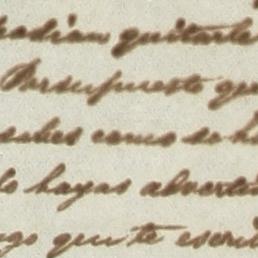 podian quitarle
Porsupuesto que
sabes como se h
lo hayas adverti
ngo que te escri